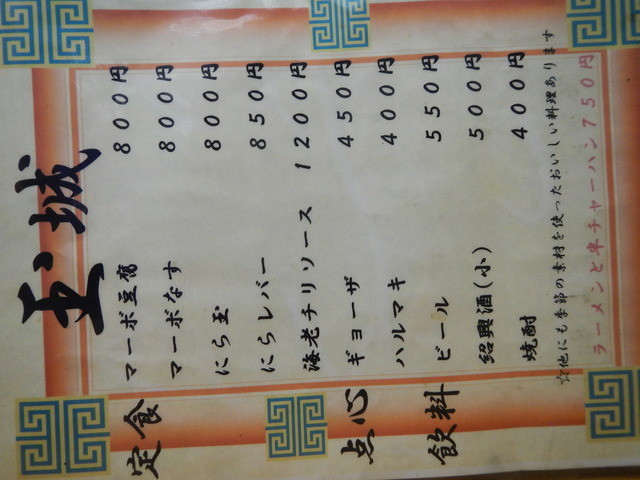 玉城
定食
マーボ豆腐 800円
マーボなす 800円
にら玉 800円
にらレバー 850円
海老チリソース 1200円
点心
ギョーザ 450円
ハルマキ 400円
飲料
ビール 550円
紹興酒(小) 500円
焼酎 400円
☆他にも季節の素材を使ったおいしい料理あります
ラーメンと半チャーハン750円